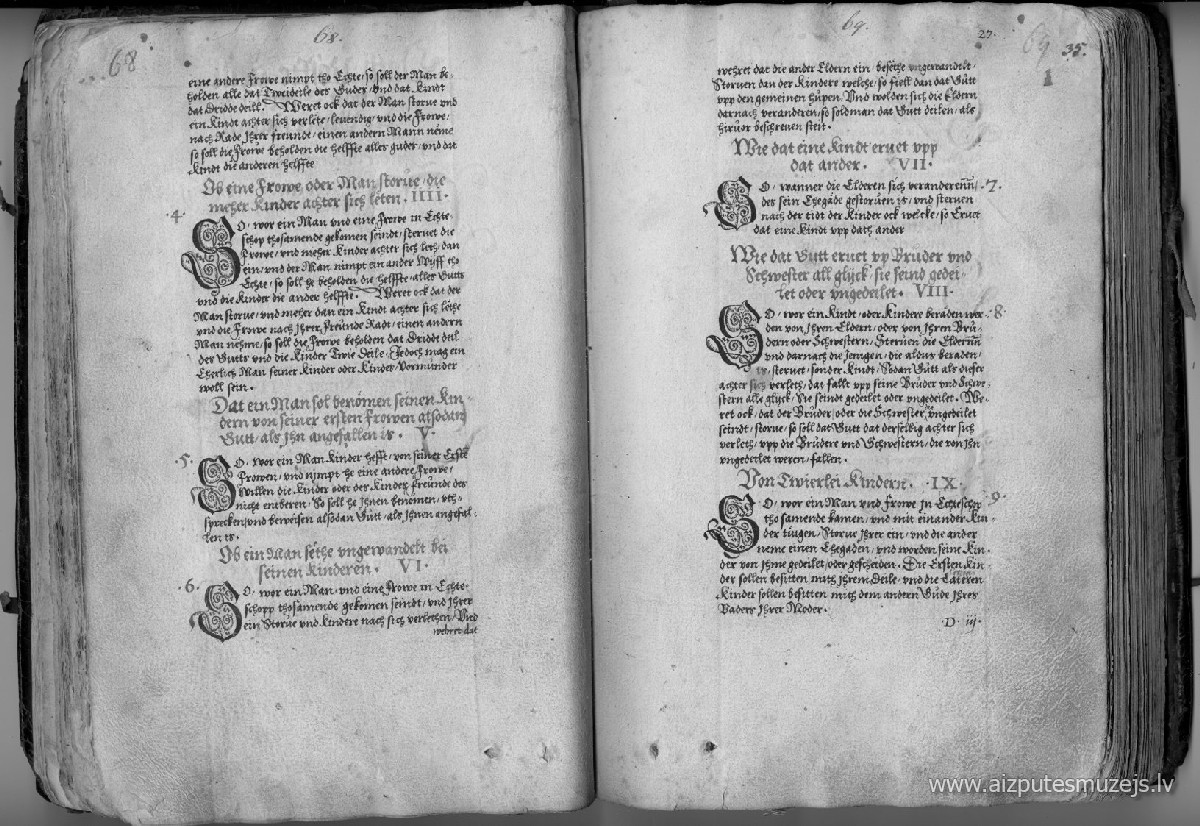 68
68.
eine andere Frowe nimpt tho Echte / so soll der Man be-
holden alle dat Twedeile des Guder / Und dat Kindt
dat Dridde deill. Weret ock dat der Man storue vnd
ein Kindt achter sich verlete / leuendig / vnd die Frowe /
nach Rade Ihrer freunde / einen andern Mann neme
so soll die Frowe beholden die helffte aller guder / vnd dat
Kindt die anderen helffte
Ob eine Frowe oder Man storue / die
meher Kinder achter sich leten. IIII.
4.
SO wor ein Man vnd eine Frowe in Echte
schop thosamende gekomen seindt / steruet die
Frowe / vnd meher Kinder achter sich leth / dan
ein / vnd der Man nimpt ein ander Wyff tho
Echte / so soll he beholden die helffte / alles Gutts
vnd die Kinder die ander helffte. Weret ock dat der
Man storue / vnd meher dan ein Kindt achter sich lethe
vnd die Frowe nach Ihrer Freunde Radt / einen andern
Man nehme / so soll die Frowe beholden dat Driddt deil
des Gutts vnd die Kinder Twie Deile / Jedoch mag ein
Eherlich Man seiner Kinder oder Kinder Vormunder
woll sein.
Dat ein Man sol benomen seinen Kin-
dern von seiner ersten Frowen alsodan
Gutt / als ihn angefallen is. V.
5.
SO wor ein Man Kinder hefft / von seiner Ersten
Frowen / vnd nimpt he eine andere Frowe /
Willen die Kinder oder des Kindes freunde des
nicht entberen / So soll he Ihnen benomen / vth-
sprecken / vnd bewisen alsodan Gutt / als Ihnen angefal-
len is.
Ob ein Man sethe vngewandelt bei
seinen Kinderen. VI.
6.
SO wor ein Man / vnd eine Frowe in Echte-
schopp thosamende gekomen seindt / vnd Ihrer
ein Storue vnd Kindere nach sich verlethen / Und
wehret dat
69.
27.
69
35.
1
wehret dat die ander Eldern ein besethe vngewandelt
Storuen dan der Kindere welche / so fiell dan dat Gutt
vpp den gemeinen hupen. Und wolden sich die Eldern
darnach veranderen / so sold man dat Gutt deilen / als
hiruor beschreuen steit.
Wie dat eine Kindt eruet vpp
dat ander. VII.
7.
SO wanner die Elderen sich veranderenn /
der sein Ehegade gestoruen is / vnd steruen
nach der tidt der Kinder ock welcke / so Eruet
dat eine Kindt vpp dath ander
Wie dat Gutt eruet vp Bruder vnd
Schwester all glyck sie seind gedei-
let oder vngedeilet. VIII.
8.
SO wor ein Kindt oder Kindere beraden wer-
den von Ihren Eldern / oder von Ihren Bru-
dern oder Schwestern / Steruen die Elderenn
vnd darnach die Jenigen / die aldus beraden /
is / steruet / sonder Kindt / Sodan Gutt als dieser
achter sich verleth / dat fallt vpp seine Bruder vnd Schwe-
stern alle glyck / Sie seindt gedeilet oder vngedeilet. We-
ret ock / dat der Bruder / oder die Schwester / vngedeilet
seindt / storue / so soll dat Gutt dat derselbig achter sich
verleth / vpp die Brudere vnd Schwestern / die von Ihn
vngedeilet weren / fallen.
Von Twierlei Kindern. IX.
9.
SO wor ein Man vnd Frowe In Echteschp
tho samende kamen / vnd mit einander Kin-
der tuigen / Storue Ihrer ein / vnd die ander
neme einen Ehegaden / vnd worden seine Kin-
der von Ihme gedeilet / oder gescheiden. Die Ersten Kin-
der sollen besitten mith Ihrem Deile / vnd die Lateren
Kinder sollen besitten mith dem andern Gude Ihres
Vaders Ihrer Moder.
D iij.
www.aizputesmuzejs.lv